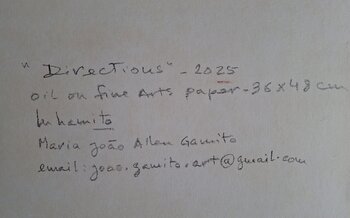 "Directions" - 2025
oil on fine Arts paper - 36 x 48 cm
Inhamito
Maria João Allen Gamito
email: joao.gamito.art@gmail.com